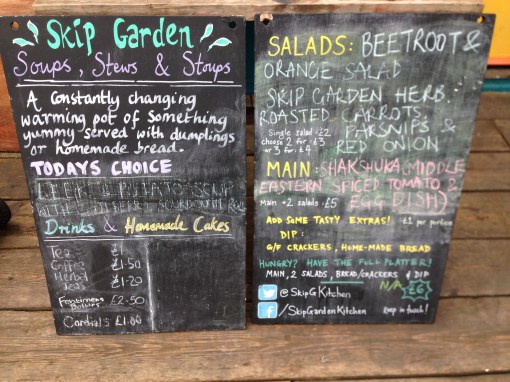 Skip Garden
Soups, Stews & Stoups
A Constantly changing
warming pot of Something
yummy served with dumplings
or homemade bread.
TODAYS CHOICE
LEEK & POTATO SOUP
WITH SOURDOUGH ROLL
Drinks & Homemade Cakes
Tea £1
Coffee £1.50
Herbal £1.20
Teas
Fentimans £2.50
Cordials £1.80
SALADS: BEETROOT &
ORANGE SALAD
SKIP GARDEN HERB
ROASTED CARROTS,
Single salad £2 PARSNIPS &
choose 2 for £3
or 3 for £4 RED ONION
MAIN: SHAKSHUKA (MIDDLE
EASTERN SPICED TOMATO &
Main +2 salads £5 EGG DISH)
ADD SOME TASTY EXTRAS! £1 per portion
DIP:
G/F CRACKERS, HOME-MADE BREAD
HUNGRY? HAVE THE FULL PLATTER!
MAIN, 2 SALADS, BREAD/CRACKERS & DIP
N/A £6
@SkipGKitchen
/SkipGardenKitchen Keep in touch!